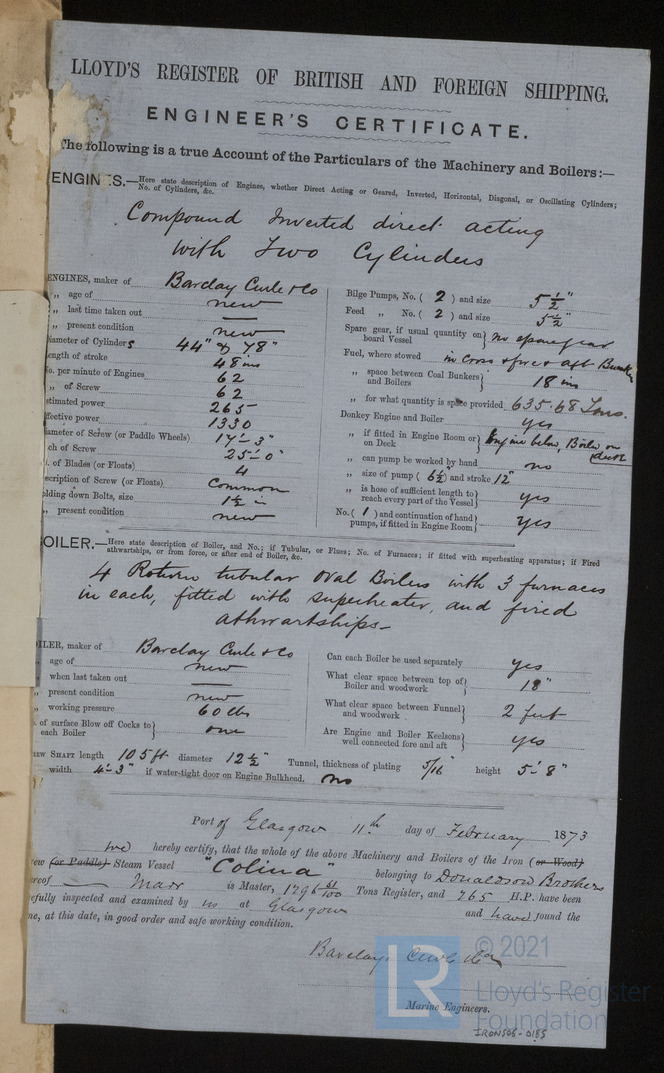 LLOYD'S REGISTER OF BRITISH AND FOREIGN SHIPPING.
ENGINEER'S CERTIFICATE.
The following is a true Account of the Particulars of the Machinery and Boilers:—
ENGINES.—Here state description of Engines, whether Direct Acting or Geared, Inverted, Horizontal, Diagonal, or Oscillating Cylinders;
No. of Cylinders, &c.
Compound Inverted direct acting
with Two Cylinders
ENGINES, maker of Barclay Curle & Co
„ age of new
„ last time taken out —
„ present condition new
iameter of Cylinders 44" & 78"
ength of stroke 48 ins
o. per minute of Engines 62
„ of Screw 62
stimated power 265
ffective power 1330
iameter of Screw (or Paddle Wheels) 17'-3"
ch of Screw 25'-0"
. of Blades (or Floats) 4
scription of Screw (or Floats) Common
olding down Bolts, size 1½ in
„ present condition new
Bilge Pumps, No. ( 2 ) and size 5½"
Feed „ No. ( 2 ) and size 5½"
Spare gear, if usual quantity on board Vessel } no spare gear
Fuel, where stowed in Cross & fore & aft Bunker
„ space between Coal Bunkers and Boilers } 18 ins
„ for what quantity is space provided 635.68 Tons.
Donkey Engine and Boiler yes
„ if fitted in Engine Room or on Deck } Engine below, Boiler on deck
„ can pump be worked by hand no
„ size of pump ( 6½" ) and stroke 12"
„ is hose of sufficient length to reach every part of the Vessel } yes
No. ( 1 ) and continuation of hand pumps, if fitted in Engine Room } yes
OILER.—Here state description of Boiler, and No.; if Tubular, or Flues; No. of Furnaces; if fitted with superheating apparatus; if Fired
athwartships, or from force, or after end of Boiler, &c.
4 Return tubular Oval Boilers with 3 furnaces
in each, fitted with superheater, and fired
athwartships—
OILER, maker of Barclay Curle & Co
„ age of new
„ when last taken out —
„ present condition new
„ working pressure 60 lbs
. of surface Blow off Cocks to each Boiler } one
Can each Boiler be used separately yes
What clear space between top of Boiler and woodwork } 18"
What clear space between Funnel and woodwork } 2 feet
Are Engine and Boiler Keelsons well connected fore and aft } yes
rew SHAFT length 105 ft diameter 12½" Tunnel, thickness of plating 5/16" height 5'-8"
width 4'-3" if water-tight door on Engine Bulkhead. no
Port of Glasgow 11th day of February 1873
we hereby certify, that the whole of the above Machinery and Boilers of the Iron (or Wood)
rew (or Paddle) Steam Vessel "Colina" belonging to Donaldson Brothers
ereof — Marr is Master, 1796 51/100 Tons Register, and 265 H.P. have been
efully inspected and examined by us at Glasgow and have found the
me, at this date, in good order and safe working condition.
Barclay Curle & Co
Marine Engineers.
IRON505-0185
LR
© 2021
Lloyd's Register
Foundation